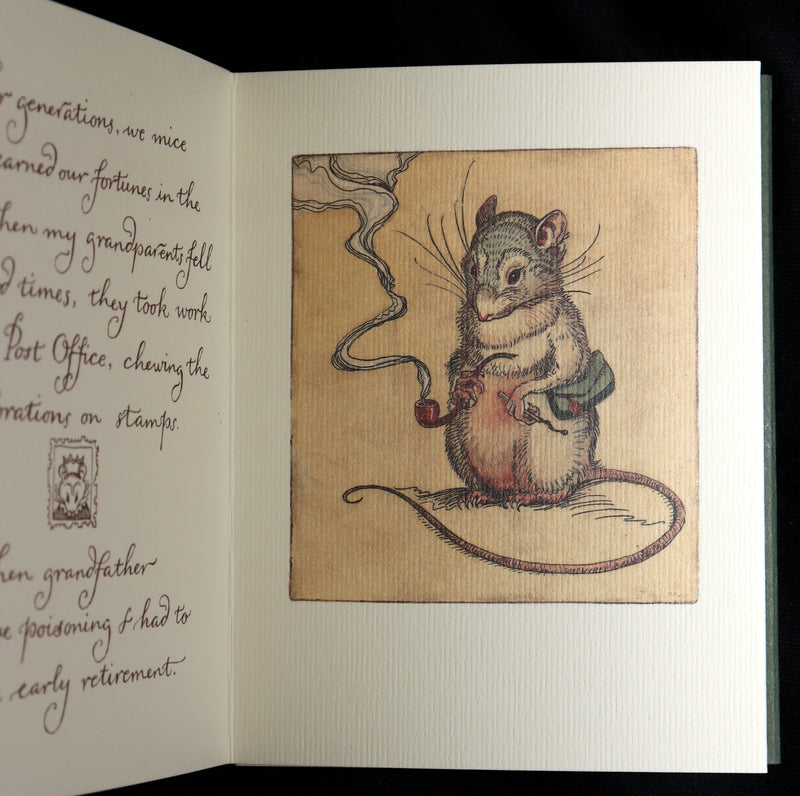 generations, we mice
earned our fortunes in the
hen my grandparents fell
d times, they took work
Post Office, chewing the
orations on stamps.
hen grandfather
e poisoning & had to
early retirement.